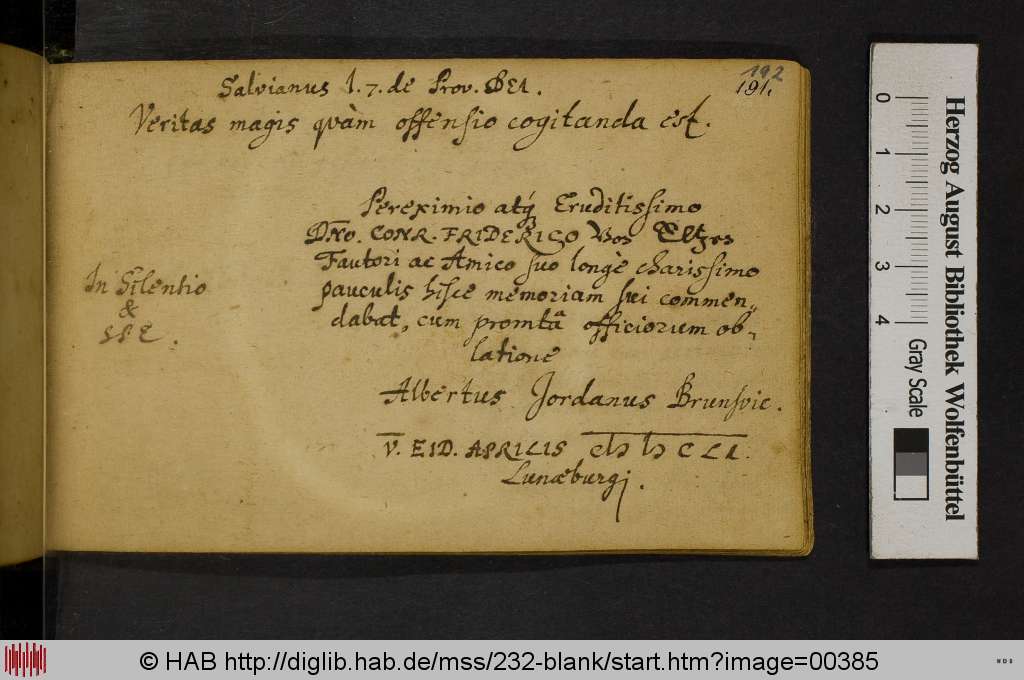 192
191.
Salvianus l. 7. de Prov. DEI.
Veritas magis quàm offensio cogitanda est.
Pereximio atq Eruditissimo
DNO. CONR. FRIDERICO Von Eltzen
Fautori ac Amico suo longè charissimo
pauculis hisce memoriam sui commen„
dabat, cum promtâ officiorum ob„
latione
Albertus Jordanus Brunsvic.
V. EID. APRILIS CIƆ IƆ C LI.
Lunæburgi.
In Silentio
&
SPE.
0 1 2 3 4
Gray Scale
Herzog August Bibliothek Wolfenbüttel
© HAB http://diglib.hab.de/mss/232-blank/start.htm?image=00385